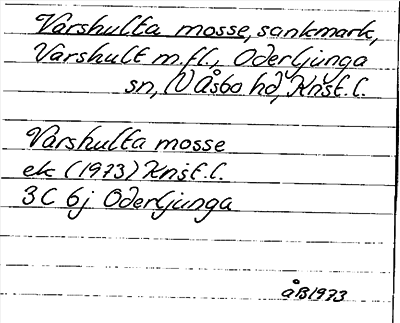 Varshulta mosse, sankmark,
Varshult m.fl., Oderljunga
sn, V Åsbo hd, Krist. l.
Varshulta mosse
ek (1973) Krist. l.
3C 6j Oderljunga
åB1973